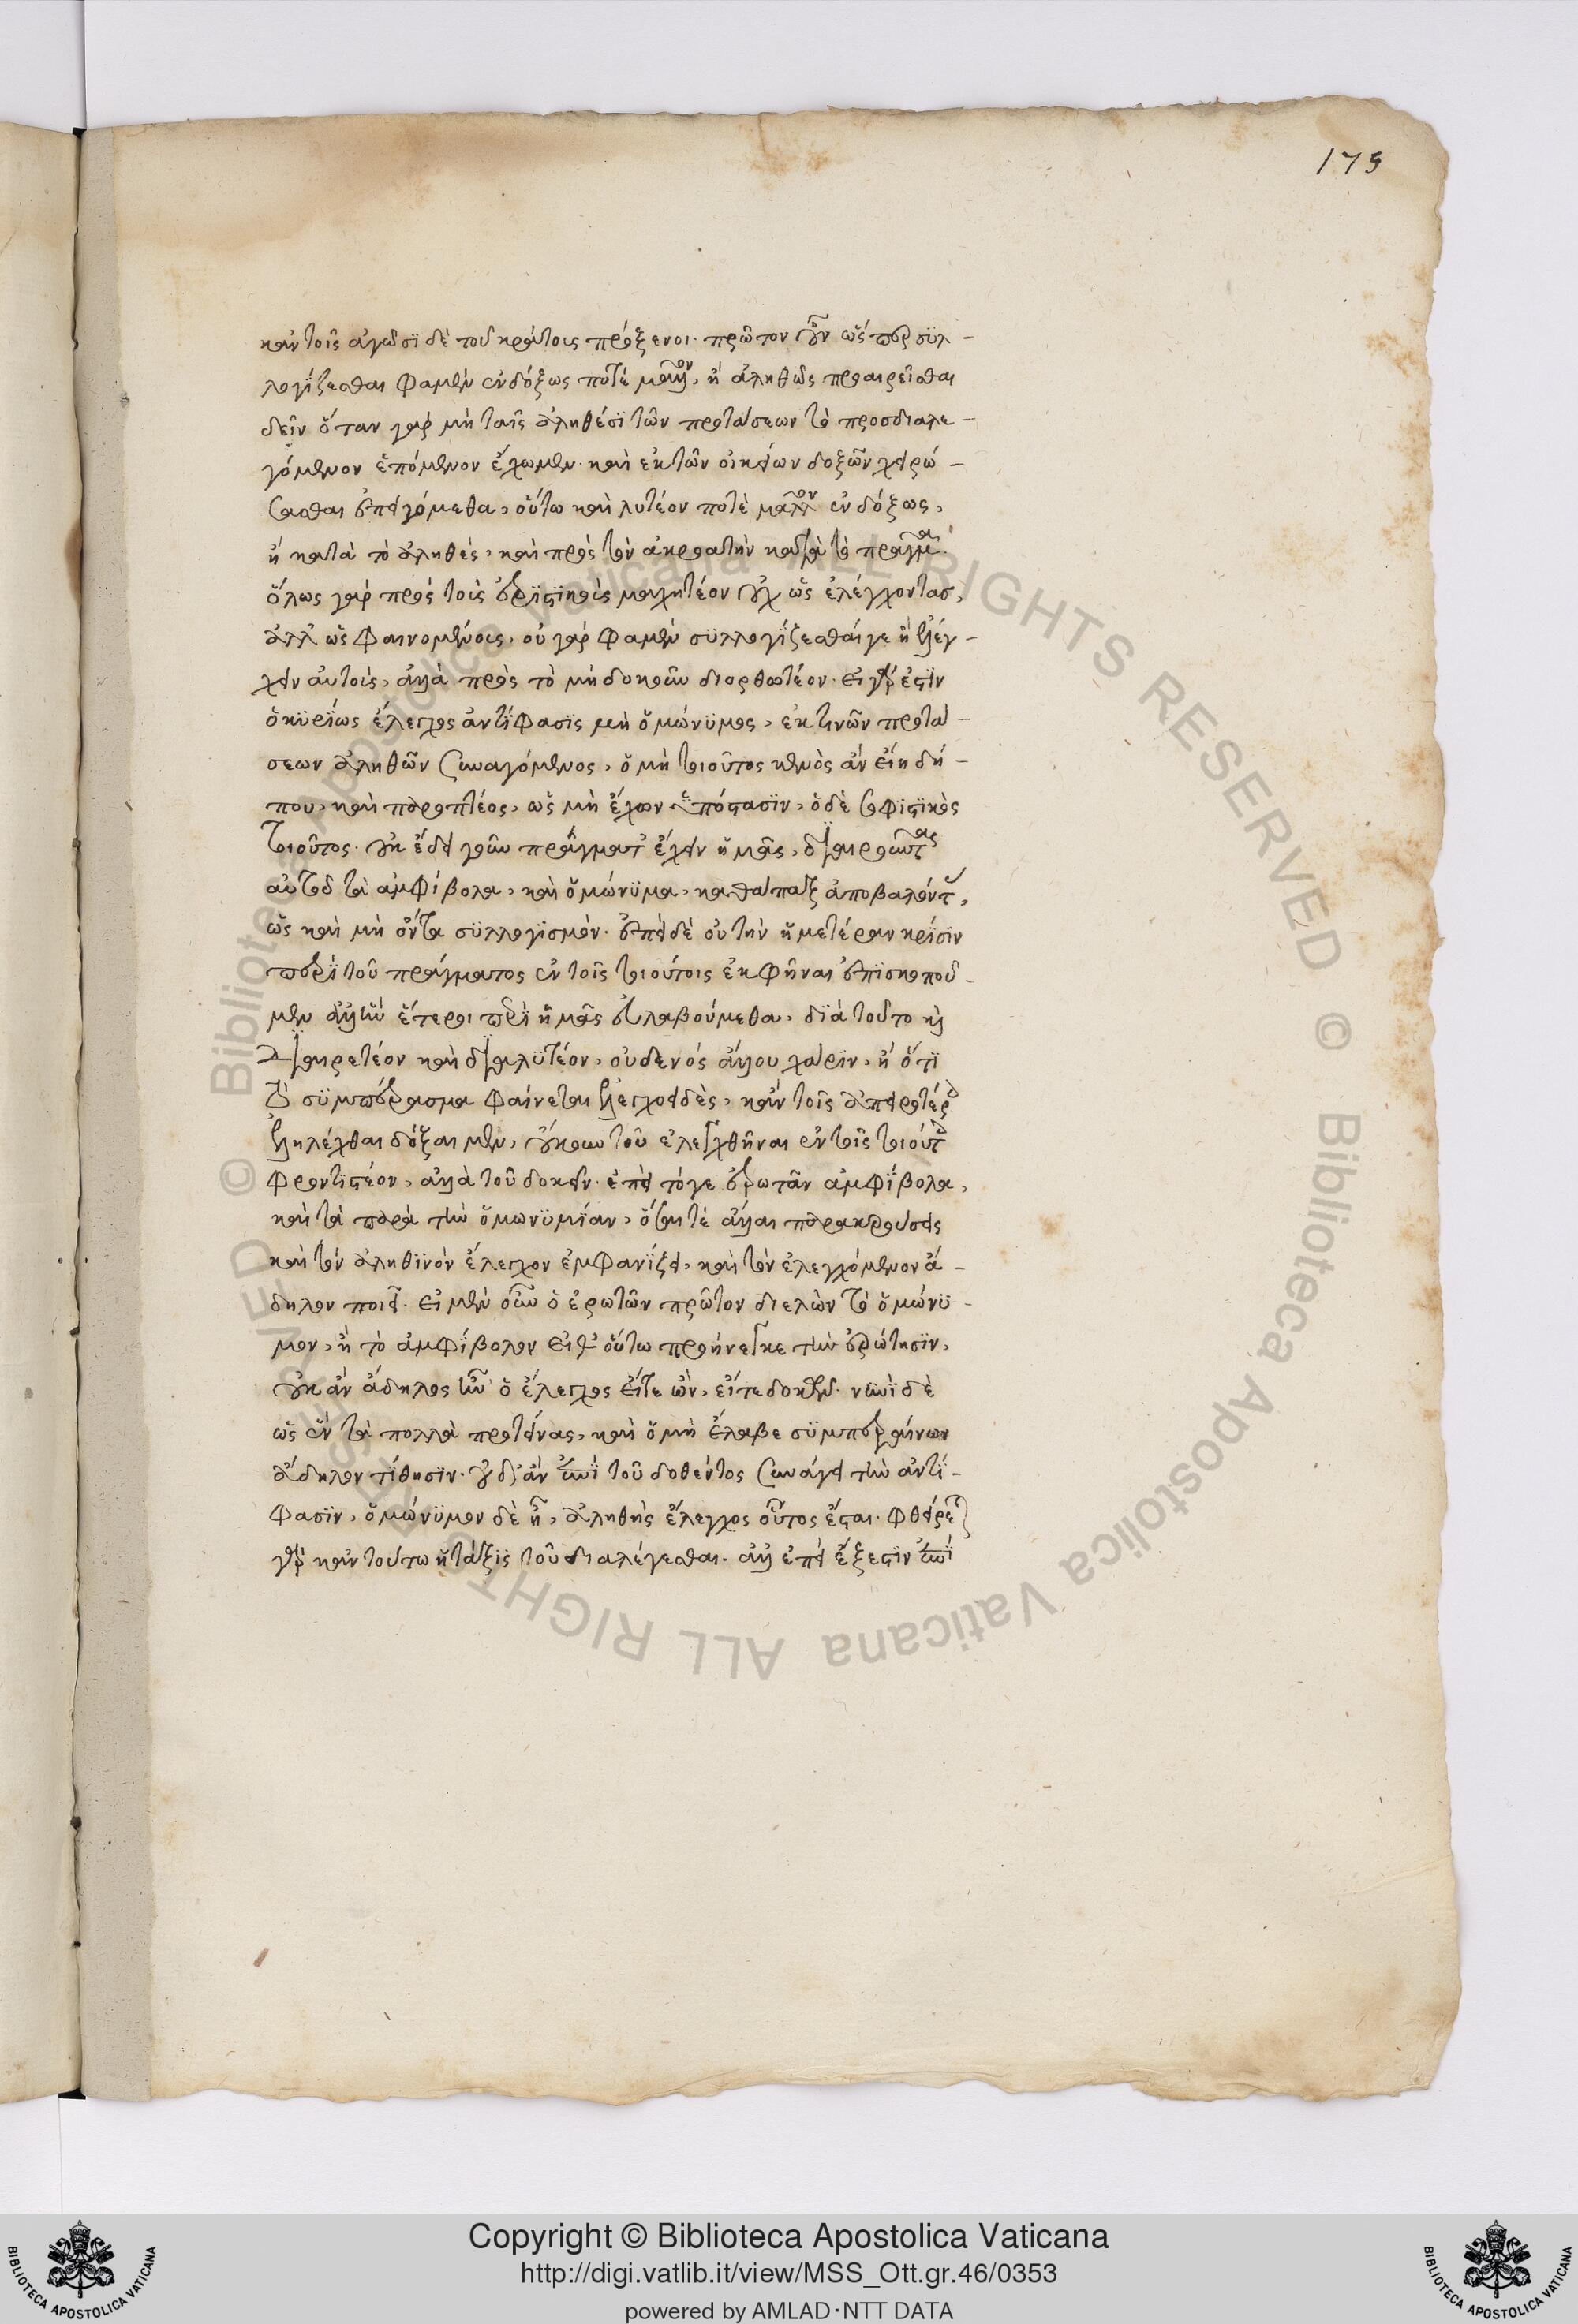 175
κἀν τοῖς ἀγῶσϊ δὲ τοῦ κράτους πρόξενοι. πρῶτον οὖν ὥσπερ συλ-
λογίζεσθαι φαμὲν ἐνδόξως ποτέ μᾶλλον, ἢ ἀληθῶς προαιρεῖσθαι
δεῖν ὅταν γὰρ μὴ ταῖς ἀληθέσϊ τῶν προτάσεων τὸ προσδιαλε-
γόμενον ἑπόμενον ἔχωμεν. καὶ ἐκ τῶν οἰκείων δοξῶν χειρώ-
σασθαι ἐπειγόμεθα, οὕτω καὶ λυτέον ποτὲ μᾶλλον ἐνδόξως,
ἢ κατὰ τὸ ἀληθές, καὶ πρὸς τὸν ἀκροατὴν κατὰ τὸ πρᾶγμα.
ὅλως γὰρ πρὸς τοὺς ἐριστικοὺς μαχητέον οὐχ ὡς ἐλέγχοντας,
ἀλλ' ὡς φαινομένους, οὐ γάρ φαμεν συλλογίζεσθαί γε ἢ ἐλέγ-
χειν αὐτοὺς, ἀλλὰ πρὸς τὸ μὴ δοκεῖν διορθωτέον. εἰ γάρ ἐστϊν
ὁ κυρίως ἔλεγχος ἀντίφασϊς μὴ ὁμώνυμος, ἐκ τινῶν προτά-
σεων ἀληθῶν συναγόμενος, ὁ μὴ τοιοῦτος κενὸς ἂν εἴη δή-
που, καὶ παροπτέος, ὡς μὴ ἔχων ὑπόστασϊν, ὁ δὲ σοφιστικὸς
τοιοῦτος. οὐκ ἔδει γοῦν πράγματ' ἔχειν ἡμᾶς, διαιροῦντας
αὐτοῦ τὰ ἀμφίβολα, καὶ ὁμώνυμα, καθάπαξ ἀποβαλόντας,
ὡς καὶ μὴ ὄντα συλλογισμόν. ἐπεὶ δὲ οὐ τὴν ἡμετέραν κρίσϊν
περὶ τοῦ πράγματος ἐν τοῖς τοιούτοις ἐκφῆναι ἐπισκοποῦ-
μεν ἀλλ' ἣν ἕτεροι περὶ ἡμᾶς εὐλαβούμεθα, διὰ τοῦτο καὶ
διαιρετέον καὶ διαλυτέον, οὐδενὸς ἄλλου χάρϊν, ἢ ὅτϊ
τὸ συμπέρασμα φαίνεται ἐλεγχοειδὲς, κἀν τοῖς ἀπειροτέροις
ἐληλέχθαι δόξαιμεν, οὔκουν τοῦ ἐλεγχθῆναι ἐν τοῖς τοιούτοις
φροντιστέον, ἀλλὰ τοῦ δοκεῖν. ἐπεὶ τό γε ἐρωτᾶν ἀμφίβολα,
καὶ τὰ παρὰ τὴν ὁμωνυμίαν, ὅσαι τὲ ἄλλαι παρακρούσεις
καὶ τὸν ἀληθϊνὸν ἔλεγχον ἐμφανίζει, καὶ τὸν ἐλεγχόμενον ἄ-
δηλον ποιεῖ. εἰ μὲν οὖν ὁ ἐρωτῶν πρῶτον διελὼν τὸ ὁμώνυ-
μον, ἢ τὸ ἀμφίβολον εἶθ' οὕτω προήνεγκε τὴν ἐρώτησϊν,
οὐκ ἂν ἄδηλος ἦν ὁ ἔλεγχος εἴτε ὢν, εἴτε δοκῶν. νυνὶ δὲ
ὡς ἓν τὰ πολλὰ προτείνας, καὶ ὃ μὴ ἔλαβε συμπεραίνων
ἄδηλον τίθησϊν. οὐδ' ἂν ἐπὶ τοῦ δοθέντος συνάγει τὴν ἀντί-
φασϊν, ὁμώνυμον δὲ ἦν, ἀληθὴς ἔλεγχος οὗτος ἔσται. φθείρεται
γὰρ κἀν τούτω ἡ τάξϊς τοῦ διαλέγεσθαι. ἀλλ' ἐπεὶ ἔξεστϊν ἐπὶ
Copyright © Biblioteca Apostolica Vaticana
http://digi.vatlib.it/view/MSS_Ott.gr.46/0353
powered by AMLAD·NTT DATA